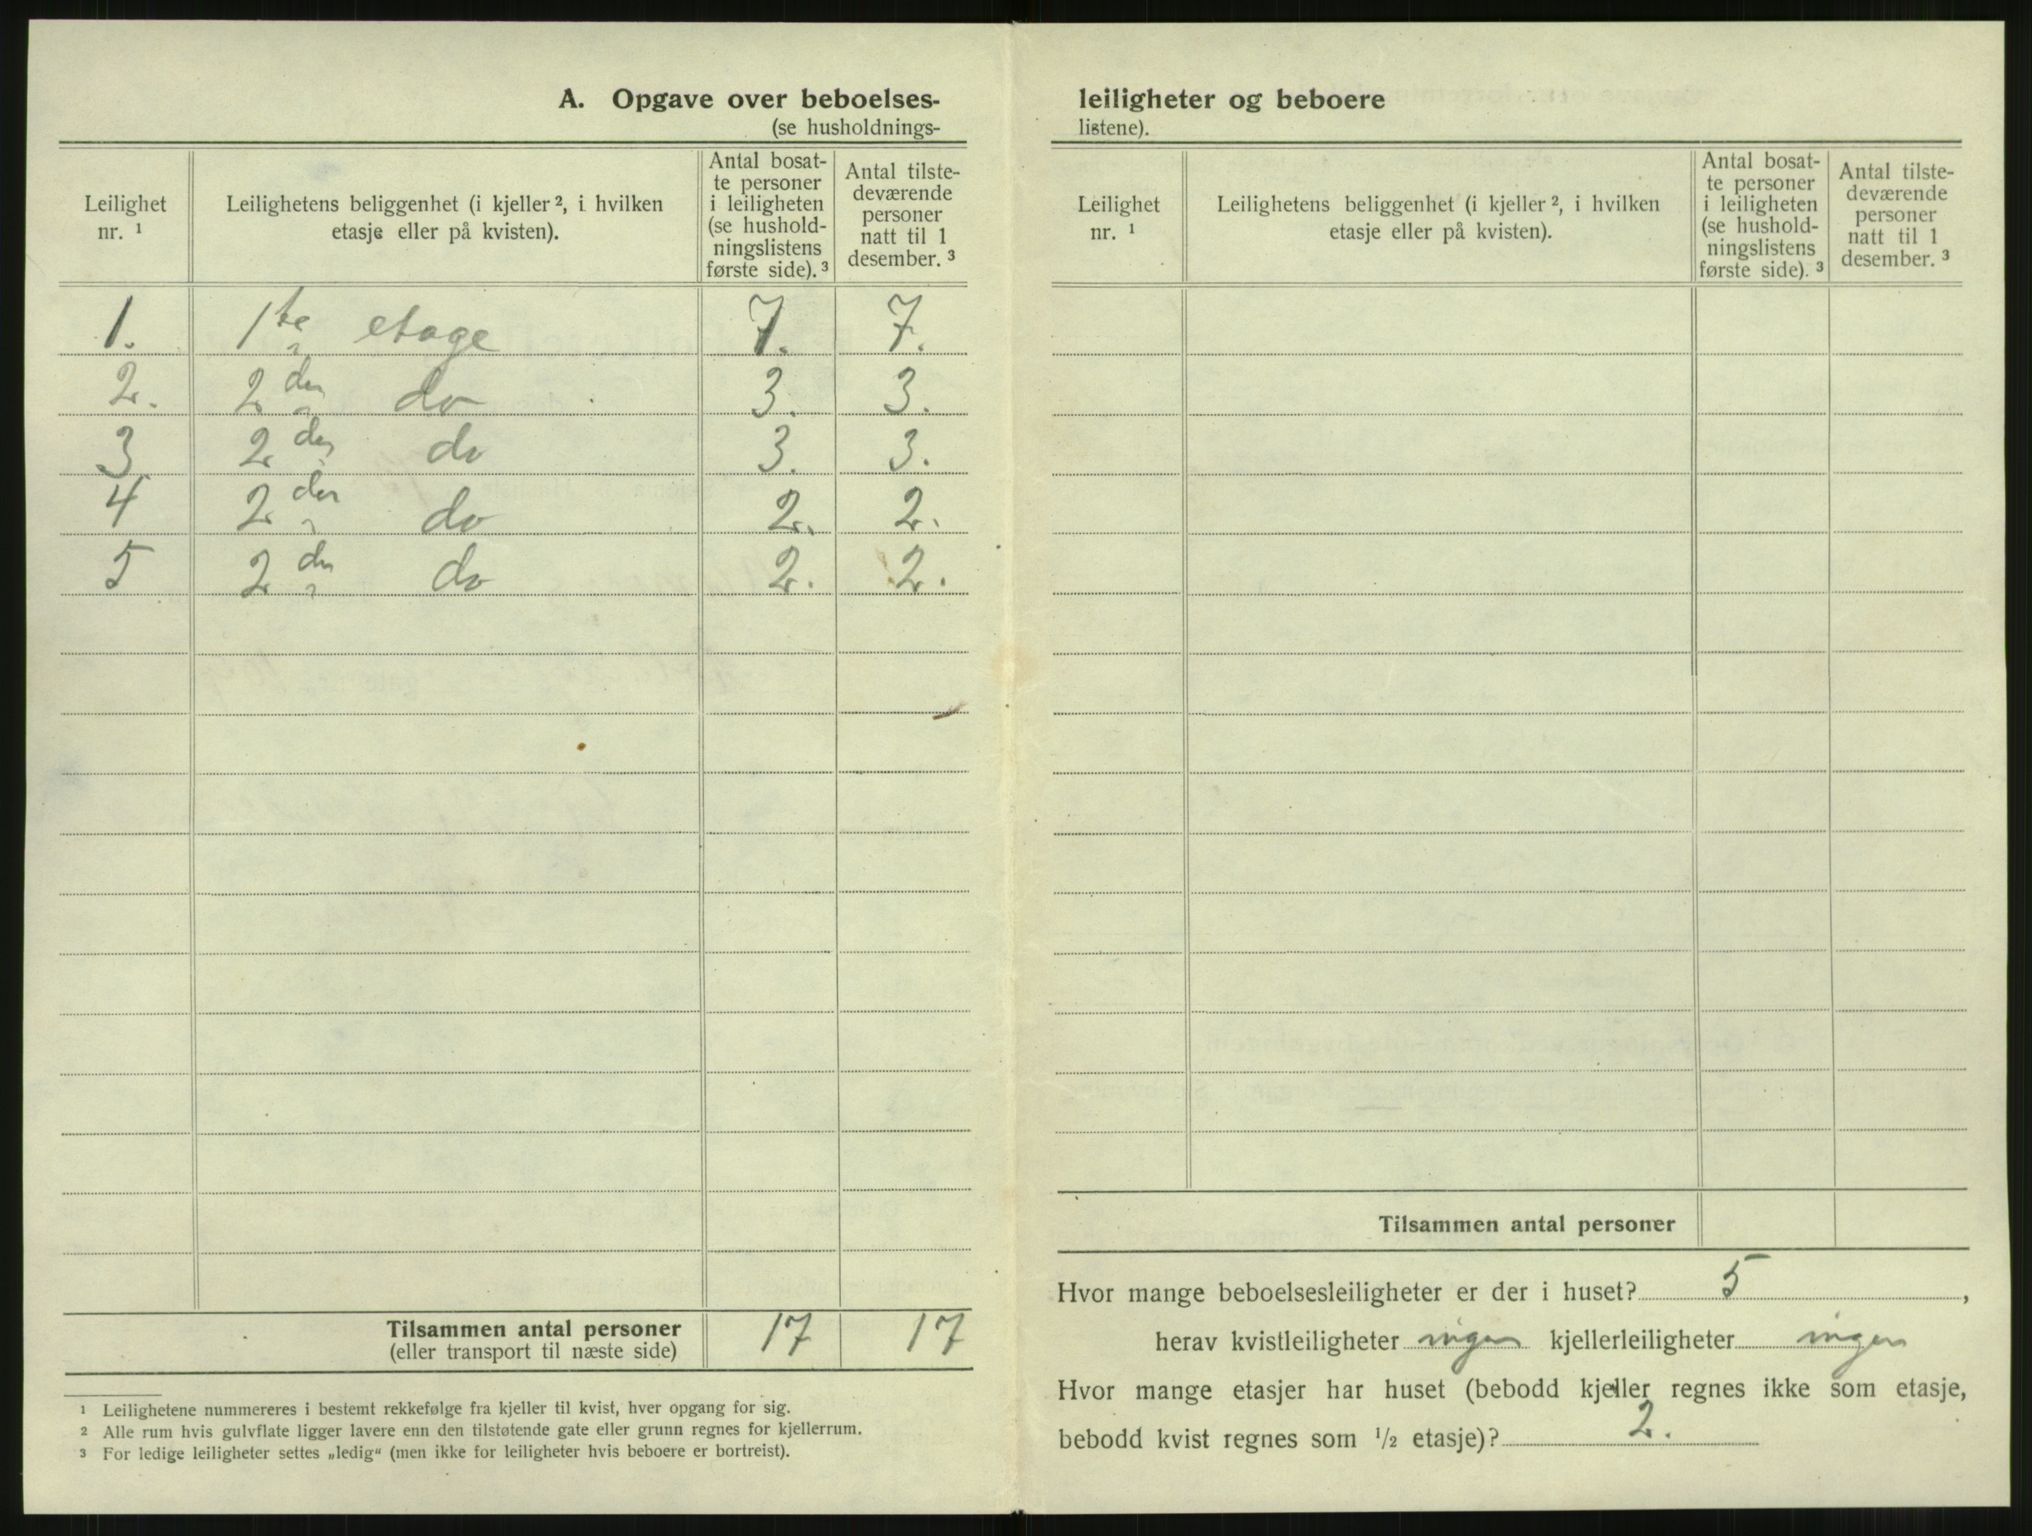 A. Opgave over beboelses-
(se husholdnings-
Leilighet nr. ¹
Leilighetens beliggenhet (i kjeller ², i hvilken etasje eller på kvisten).
Antal bosat-
te personer
i leiligheten
(se hushold-
ningslistens
første side). ³
Antal tilste-
deværende
personer
natt til 1
desember. ³
1. 1te etage 7. 7.
2. 2den do 3. 3.
3 2den do 3. 3.
4 2den do 2. 2.
5 2den do 2. 2.
Tilsammen antal personer 17 17
(eller transport til næste side)
¹ Leilighetene nummereres i bestemt rekkefølge fra kjeller til kvist, hver opgang for sig.
² Alle rum hvis gulvflate ligger lavere enn den tilstøtende gate eller grunn regnes for kjellerrum.
³ For ledige leiligheter settes „ledig" (men ikke for leiligheter hvis beboere er bortreist).
leiligheter og beboere
listene).
Leilighet nr. ¹
Leilighetens beliggenhet (i kjeller ², i hvilken etasje eller på kvisten).
Antal bosat-
te personer
i leiligheten
(se hushold-
ningslistens
første side). ³
Antal tilste-
deværende
personer
natt til 1
desember. ³
Tilsammen antal personer
Hvor mange beboelsesleiligheter er der i huset? 5,
herav kvistleiligheter ingen kjellerleiligheter ingen
Hvor mange etasjer har huset (bebodd kjeller regnes ikke som etasje,
bebodd kvist regnes som ½ etasje)? 2.